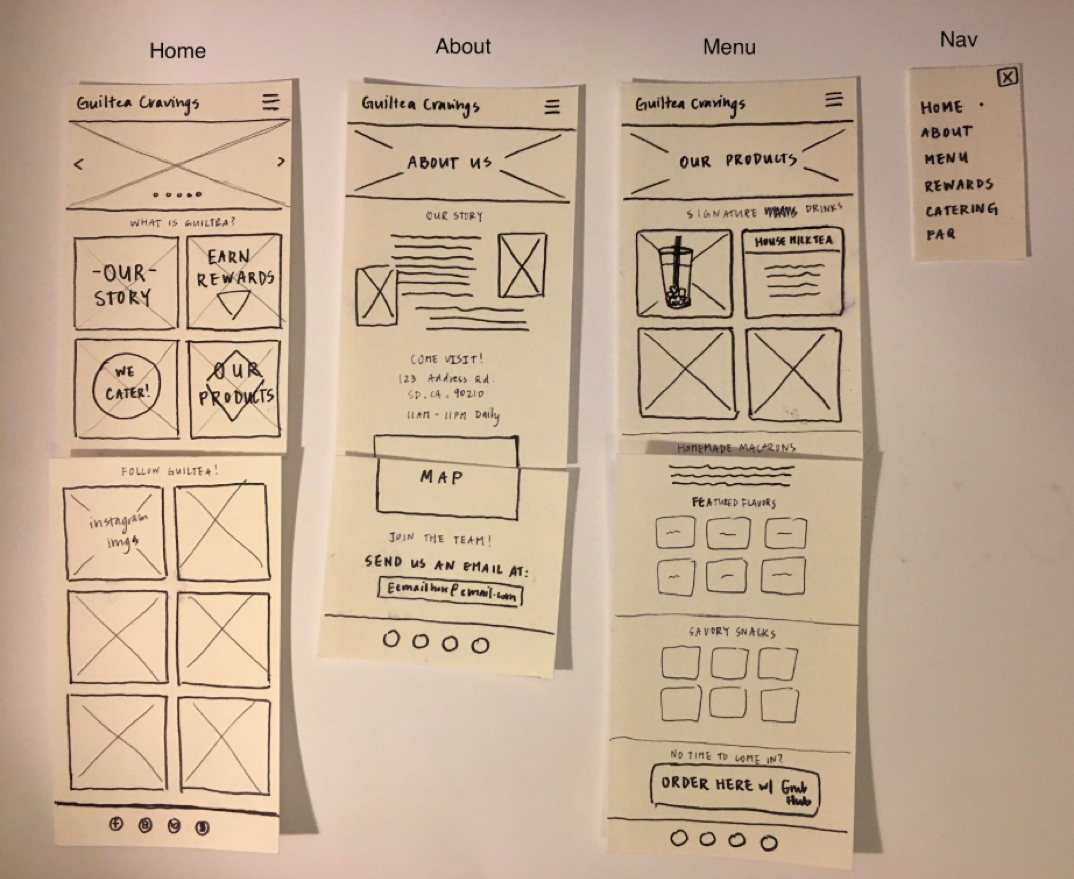 Home
About
Menu
Nav
Guiltea Cravings
WHAT IS GUILTEA?
-OUR-
STORY
EARN
REWARDS
WE
CATER!
OUR
PRODUCTS
FOLLOW GUILTEA!
instagram
imgs
Guiltea Cravings
ABOUT US
OUR STORY
COME VISIT!
123 Address Rd.
SD, CA, 90210
11AM - 11PM Daily
MAP
JOIN THE TEAM!
SEND US AN EMAIL AT:
Guiltea Cravings
OUR PRODUCTS
SIGNATURE DRINKS
HOUSE MILK TEA
HOMEMADE MACARONS
FEATURED FLAVORS
SAVORY SNACKS
NO TIME TO COME IN?
ORDER HERE w/ Grub
Hub
X
HOME
ABOUT
MENU
REWARDS
CATERING
FAQ